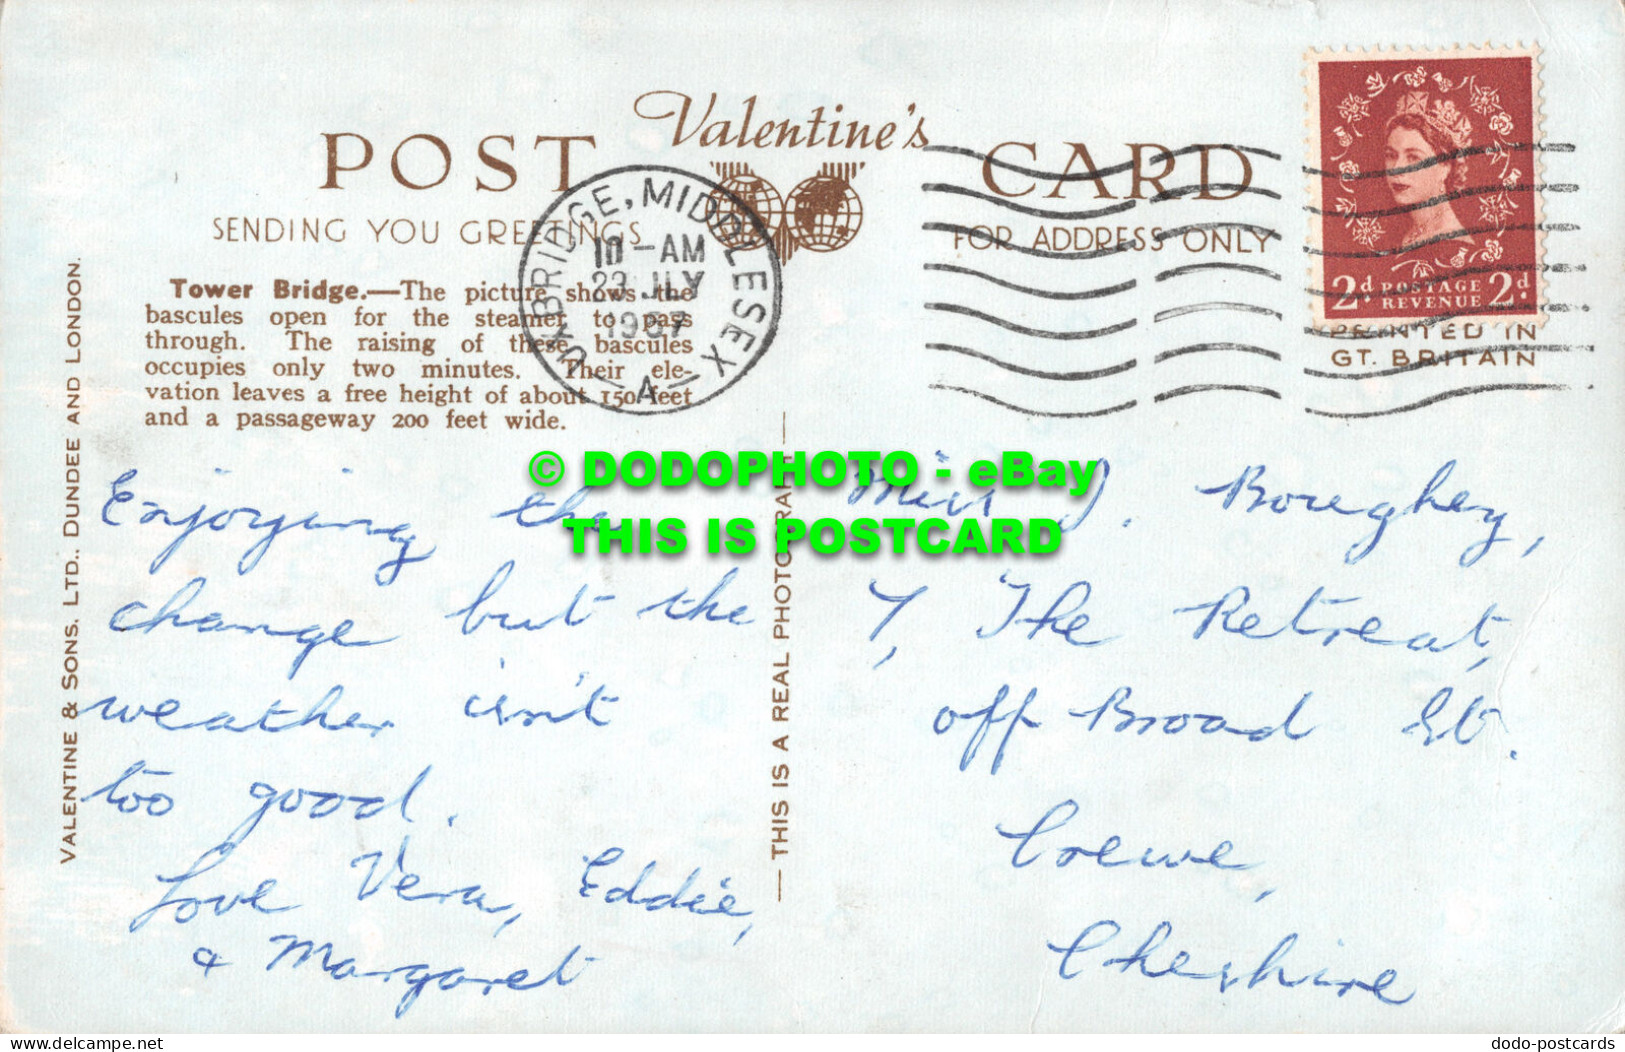 Valentine's
POST CARD
SENDING YOU GREETINGS
FOR ADDRESS ONLY
UXBRIDGE, MIDDLESEX
10-AM
23 JLY
1957
A
2d. POSTAGE REVENUE 2d.
PRINTED IN
GT. BRITAIN
Tower Bridge.—The picture shows the
bascules open for the steamer to pass
through. The raising of these bascules
occupies only two minutes. Their ele-
vation leaves a free height of about 150 feet
and a passageway 200 feet wide.
VALENTINE & SONS. LTD., DUNDEE AND LONDON.
THIS IS A REAL PHOTOGRAPH
© DODOPHOTO - eBay
THIS IS POSTCARD
Enjoying the
change but the
weather isn't
too good.
Love Vera, Eddie,
& Margaret
Miss J. Boughey,
7, The Retreat,
off Broad St.
Crewe,
Cheshire
delcampe.net
dodo-postcards